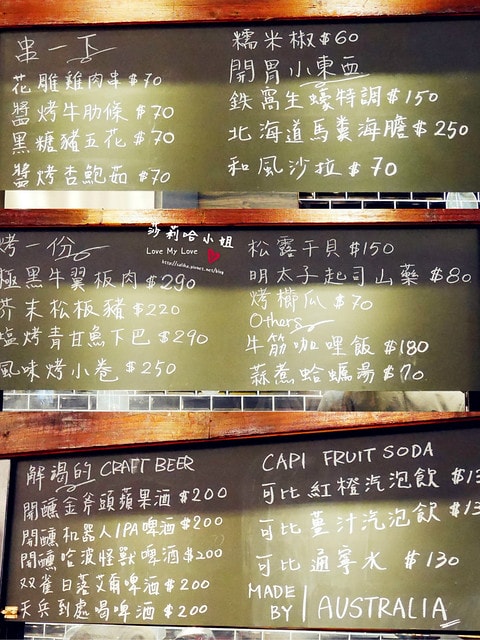 串一下
花雕雞肉串$70
醬烤牛肋條$70
黑糖豬五花$70
醬烤杏鮑茹$70
糯米椒$60
開胃小東西
鉄窩生蠔特調$150
北海道馬糞海膽$250
和風沙拉$70
莎莉哈小姐
Love My Love
烤一份
極黑牛翼板肉$290
芥末松板豬$220
塩烤青甘魚下巴$290
風味烤小卷$250
松露干貝$150
明太子起司山藥$80
烤櫛瓜$70
Others
牛筋咖哩飯$180
蒜煮蛤蠣湯$70
解渴的 CRAFT BEER
開釀金斧頭蘋果酒$200
開釀机器人IPA啤酒$200
開釀哈波怪獸啤酒$200
双雀日落艾角啤酒$200
天兵到處喝啤酒$200
CAPI FRUIT SODA
可比紅橙汽泡飲
可比薑汁汽泡飲
可比通寧水 $130
MADE
BY AUSTRALIA